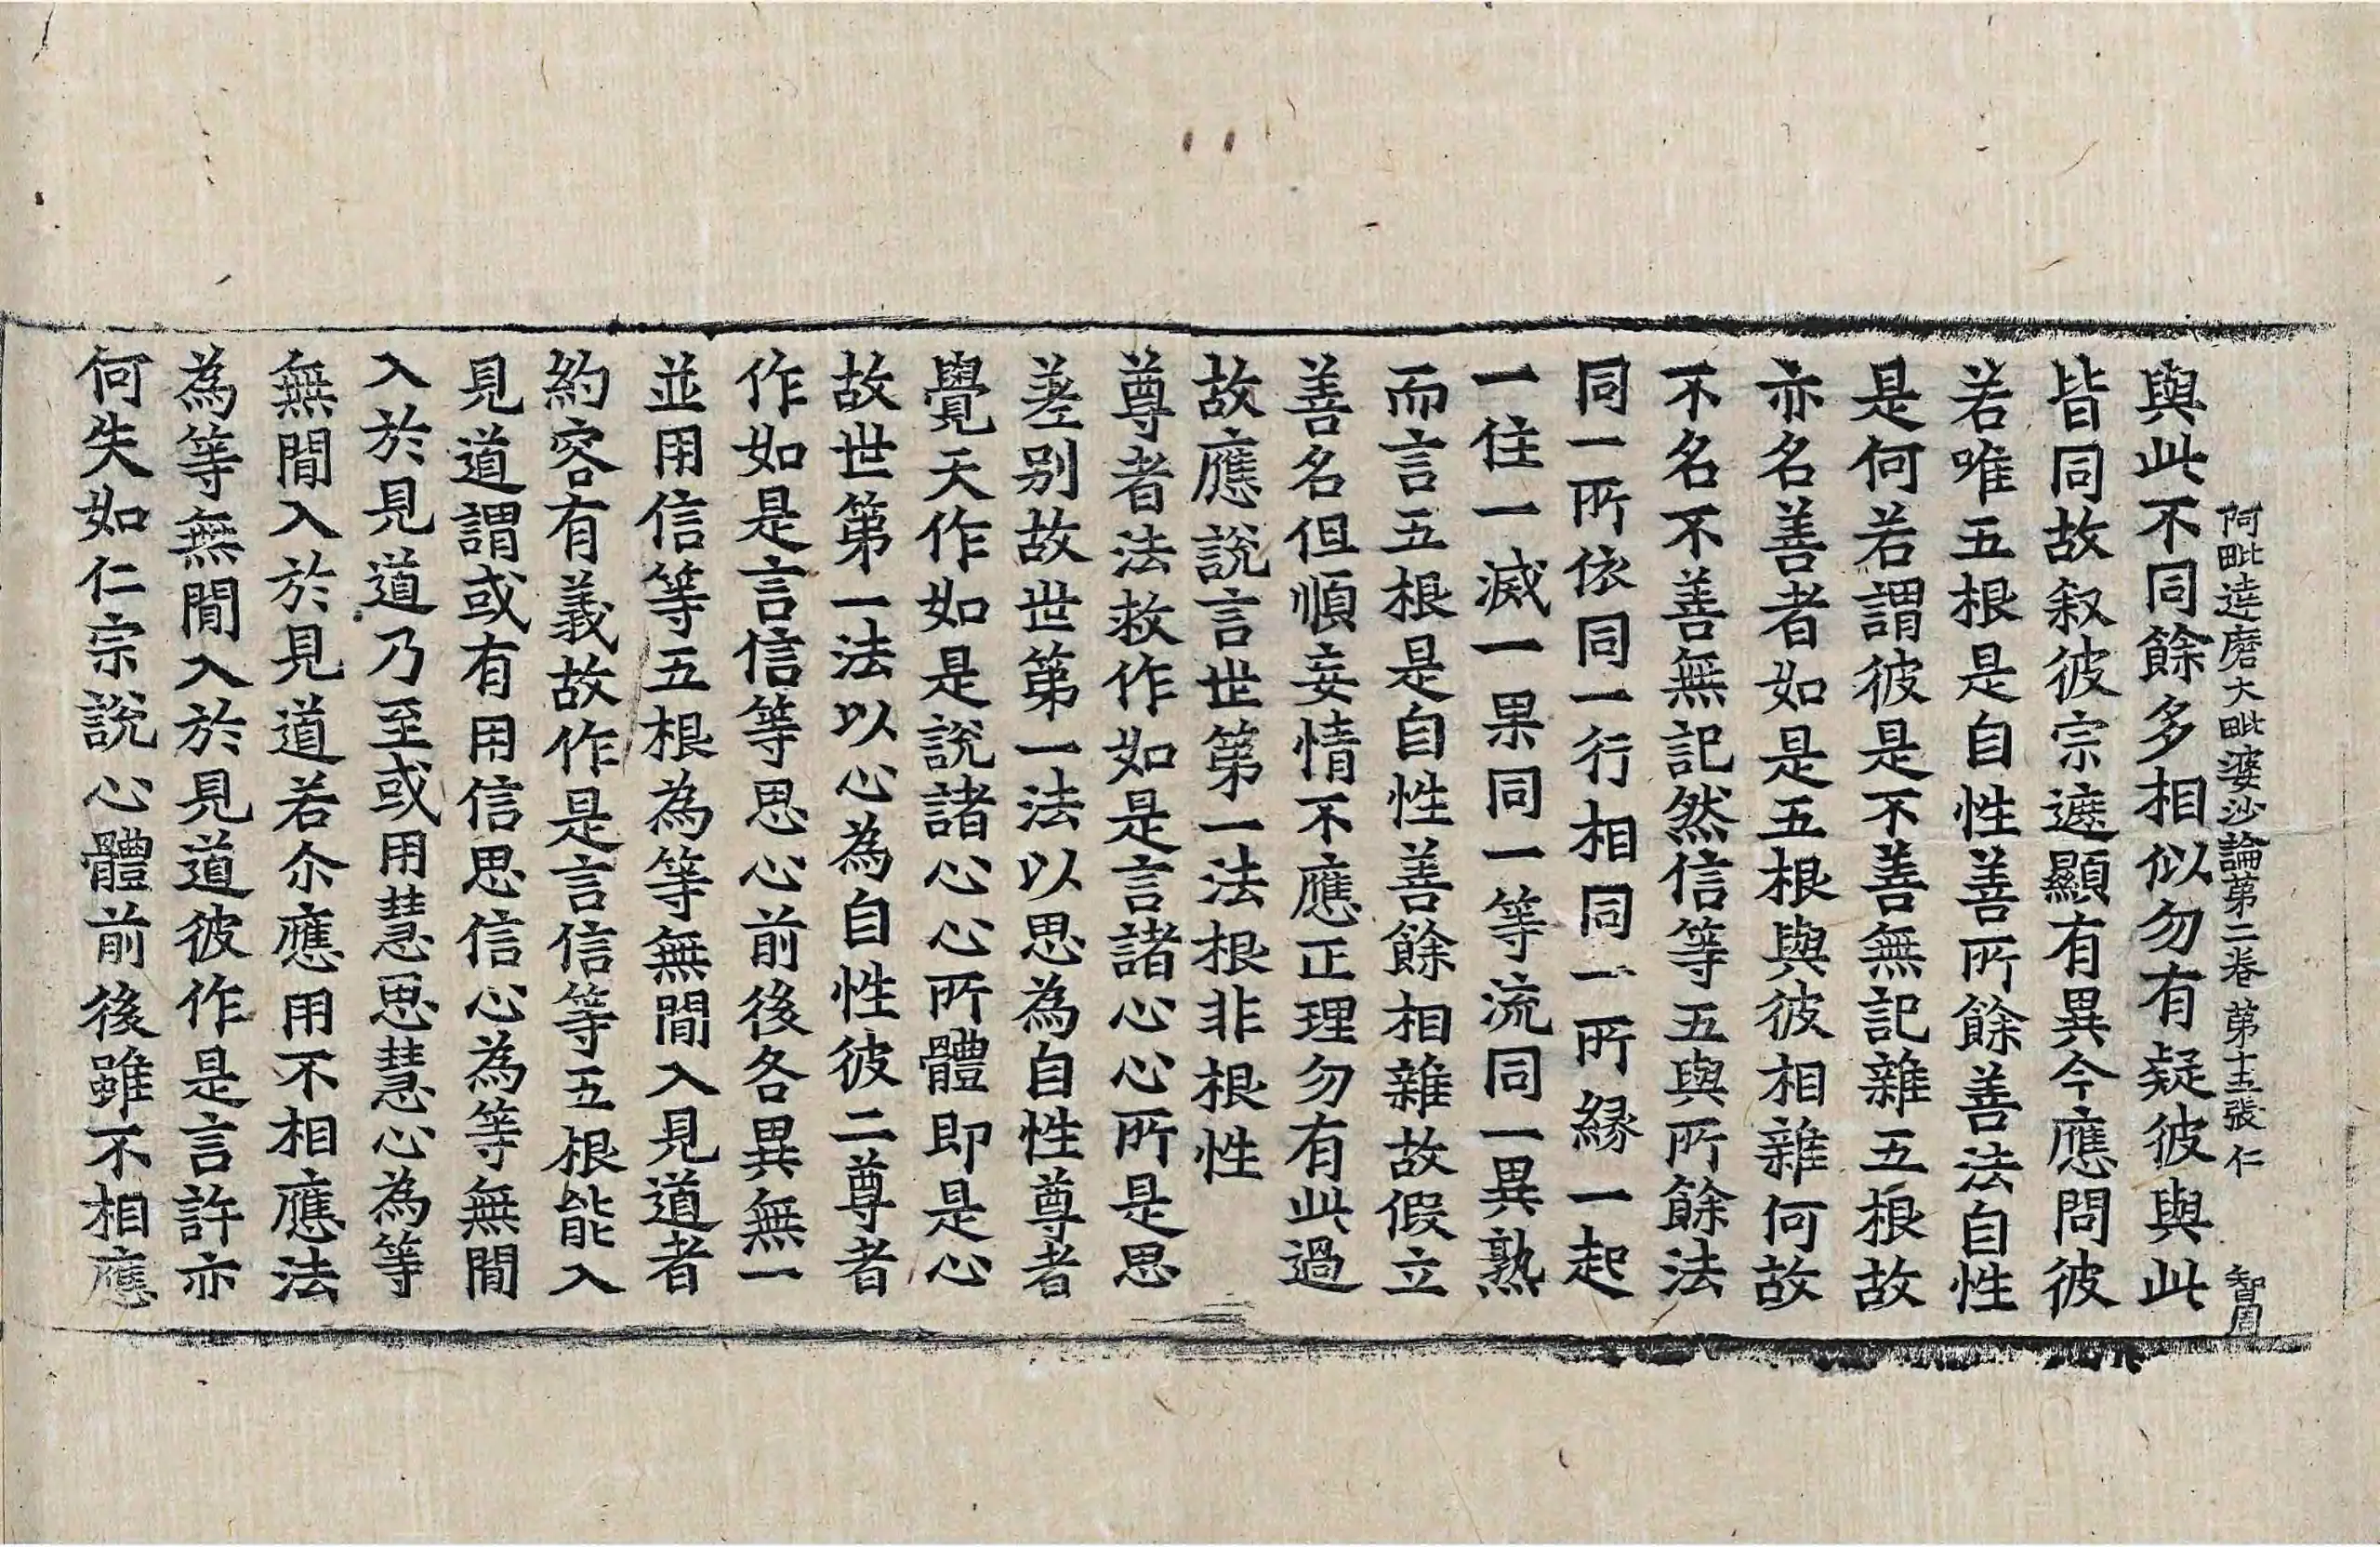 阿毗達磨大毗婆沙論苐二卷 苐十五張 仁 智周
與此不同餘多相似勿有疑彼與此
皆同故叙彼宗遮顯有異今應問彼
若唯五根是自性善所餘善法自性
是何若謂彼是不善無記雜五根故
亦名善者如是五根與彼相雜何故
不名不善無記然信等五與所餘法
同一所依同一行相同一所緣一起
一住一滅一果同一等流同一異熟
而言五根是自性善餘相雜故假立
善名但順妄情不應正理勿有此過
故應說言世第一法根非根性
尊者法救作如是言諸心心所是思
差别故世第一法以思為自性尊者
覺天作如是說諸心心所體即是心
故世第一法以心為自性彼二尊者
作如是言信等思心前後各異無一
並用信等五根為等無間入見道者
約容有義故作是言信等五根能入
見道謂或有用信思信心為等無間
入於見道乃至或用慧思慧心為等
無間入於見道若尒應用不相應法
為等無間入於見道彼作是言許亦
何失如仁宗說心體前後雖不相應